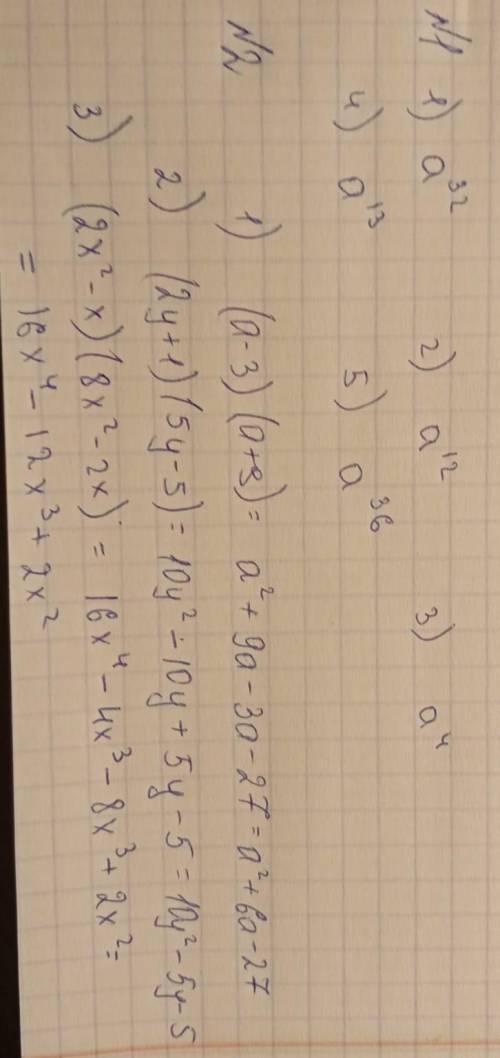 №1 1) a³² 2) a¹² 3) a⁴
4) a¹³ 5) a³⁶
№2 1) (a-3)(a+9)= a²+9a-3a-27=a²+6a-27
2) (2y+1)(5y-5)=10y²-10y+5y-5=10y²-5y-5
3) (2x²-x)(8x²-2x)= 16x⁴-4x³-8x³+2x²=
= 16x⁴-12x³+2x²